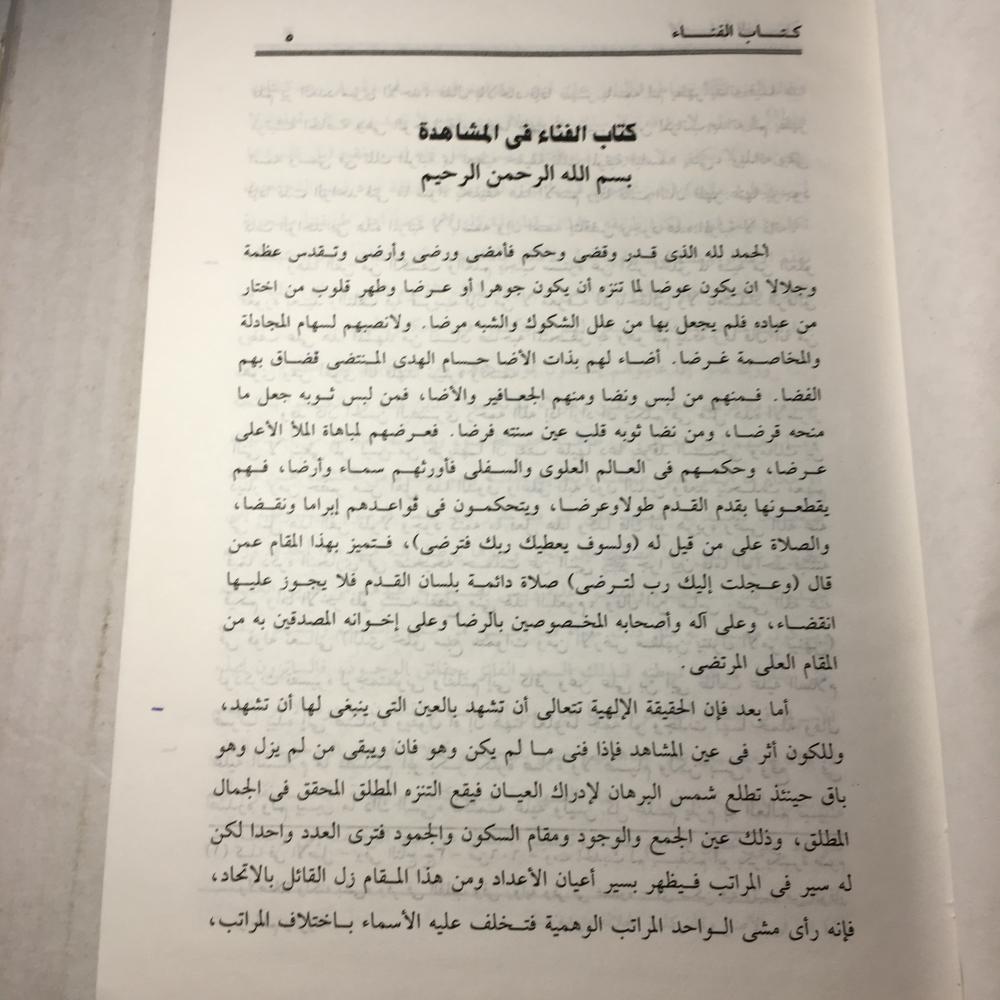 كتاب الفناء
٥
كتاب الفناء فى المشاهدة
بسم الله الرحمن الرحيم
الحمد لله الذى قدر وقضى وحكم فأمضى ورضى وأرضى وتقدس عظمة
وجلالاً ان يكون عوضا لما تنزه أن يكون جوهرا أو عرضا وطهر قلوب من اختار
من عباده فلم يجعل بها من علل الشكوك والشبه مرضا. ولانصبهم لسهام المجادلة
والمخاصمة غرضا. أضاء لهم بذات الأضا حسام الهدى المنتضى فضاق بهم
الفضا. فمنهم من لبس ونضا ومنهم الجعافير والأضا، فمن لبس ثوبه جعل ما
منحه قرضا، ومن نضا ثوبه قلب عين سنته فرضا. فعرضهم لمباهاة الملأ الأعلى
عرضا، وحكمهم فى العالم العلوى والسفلى فأورثهم سماء وأرضا، فهم
يقطعونها بقدم القدم طولاوعرضا، ويتحكمون فى قواعدهم إبراما ونقضا،
والصلاة على من قيل له (ولسوف يعطيك ربك فترضى)، فتميز بهذا المقام عمن
قال (وعجلت إليك رب لترضى) صلاة دائمة بلسان القدم فلا يجوز عليها
انقضاء، وعلى آله وأصحابه المخصوصين بالرضا وعلى إخوانه المصدقين به من
المقام العلى المرتضى.
أما بعد فإن الحقيقة الإلهية تتعالى أن تشهد بالعين التى ينبغى لها أن تشهد،
وللكون أثر فى عين المشاهد فإذا فنى ما لم يكن وهو فان ويبقى من لم يزل وهو
باق حينئذ تطلع شمس البرهان لإدراك العيان فيقع التنزه المطلق المحقق فى الجمال
المطلق، وذلك عين الجمع والوجود ومقام السكون والجمود فترى العدد واحدا لكن
له سير فى المراتب فيظهر بسير أعيان الأعداد ومن هذا المقام زل القائل بالاتحاد،
فإنه رأى مشى الواحد المراتب الوهمية فتخلف عليه الأسماء باختلاف المراتب،